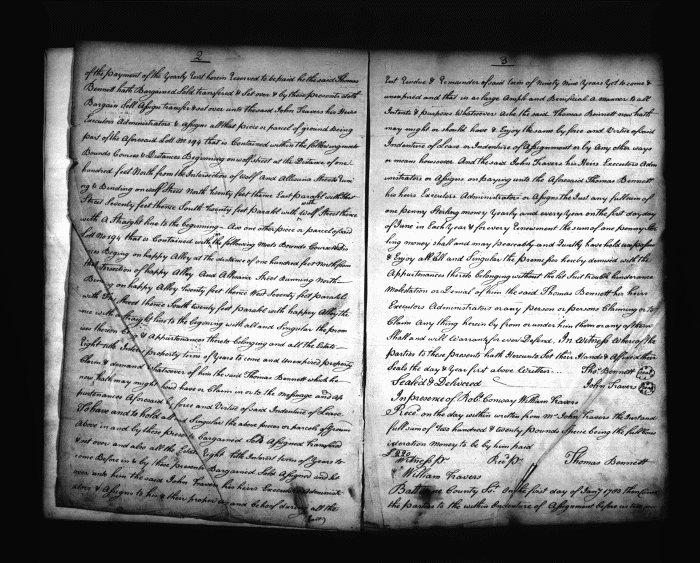 2
of the payment of the Yearly Rent herein Reserved to be paid by the said Thomas
Bennett hath Bargained Sold transfered & Set over & by these presents doth
Bargain Sell Assign transfer & set over unto the said John Travers his Heirs
Executors Administrators & Assigns all that piece or parcel of ground being
part of the Aforesaid Lott No. 194 that is Contained within the following meets
Bounds Courses & Distances Beginning on Wolf street at the Distance of one
hundred feet North from the Intersection of Wolf and Allicana Streets Runn
ing & Bending on Wolf Street North Twenty feet thence East Parallel with that
Street Seventy feet thence South Twenty feet Parallel with Wolf Street thence
with a Straight line to the beginning. Also one other piece or parcel of said
Lott No. 194 that is Contained with the following Meets Bounds Courses & Distan
ces Beging on happy Alley at the distance of one hundred feet North from
the Intersection of happy Alley And Allicana Street Running North
Being on happy Alley Twenty feet thence West Seventy feet parallel
with the street thence South twenty feet parallel with happy Alley the
nce with a Straight line to the begining with all and Singular the prem
ises thereon & Appurtenances thereto belonging and all the Estate
Right title Interest property term of Years to come and Unexpired property
Claim & demand Whatsoever of him the said Thomas Bennett which he
now hath may might have or Claim in or to the Messuage and ap
purtenances Aforesaid by force and Virtue of said Indenture of Lease
To have and to hold all and Singular the above pieces or parcels of Ground
Above in and by these presents Bargained Sold Assigned Transfered
& set over and also all the Estate Right title Interest term of Years to
come Before in & by these presents Bargained Sold Assigned and set
over unto the said John Travers his heirs Executors Administr
ators & Assigns to his & their proper use and behoof during all the
Rest
3
Rest Residue & Remainder of said term of Ninety Nine Years Yet to come &
unexpired and that in as large Ample and Beneficial a manner to all
Intents & purposes Whatsoever As he the said Thomas Bennett now hath
may might or should have & Enjoy the same by force and Virtue of said
Indenture of Lease or Indenture of Assignment or by Any other ways
or means howsoever And the said John Travers his Heirs Executors Adm
inistrators or Assigns on paying unto the Aforesaid Thomas Bennett
his heirs Executors Administrators or Assigns the Just and full sum of
one penny Sterling money Yearly and every Year on the first day day
of June in Each Year & for every Renewment the sum of one penny Ster
ling money shall and may peaceably and Quietly have hold use possess
& Enjoy all and Singular the premises hereby demised with the
Appurtenances thereto belonging without the let suit trouble hinderance
Molestation or Denial of him the said Thomas Bennett his heirs
Executors Administrators or any person or persons Claiming or to
Claim Any thing herein by from or under him them or any of them
Shall and will Warrant & for ever Defend. In Witness Whereof the
parties to these presents hath hereunto Set their Hands & Affixed their
Seals the day & Year first above Written
Thos. Bennett Seal
Sealed & Delivered
John Travers Seal
In presence of Robt. Conway William Travers
Recd. on the day within written from Mr. John Travers the Just and
full sum of Two hundred & twenty Pounds Specie being the full Cons
ideration Money to be by him paid
£220
Witness
Thomas Bennett
William Travers
Baltimore County Sc. On the first day of Jany. 1783 then Came
the parties to the within Indenture of Assignment before us two